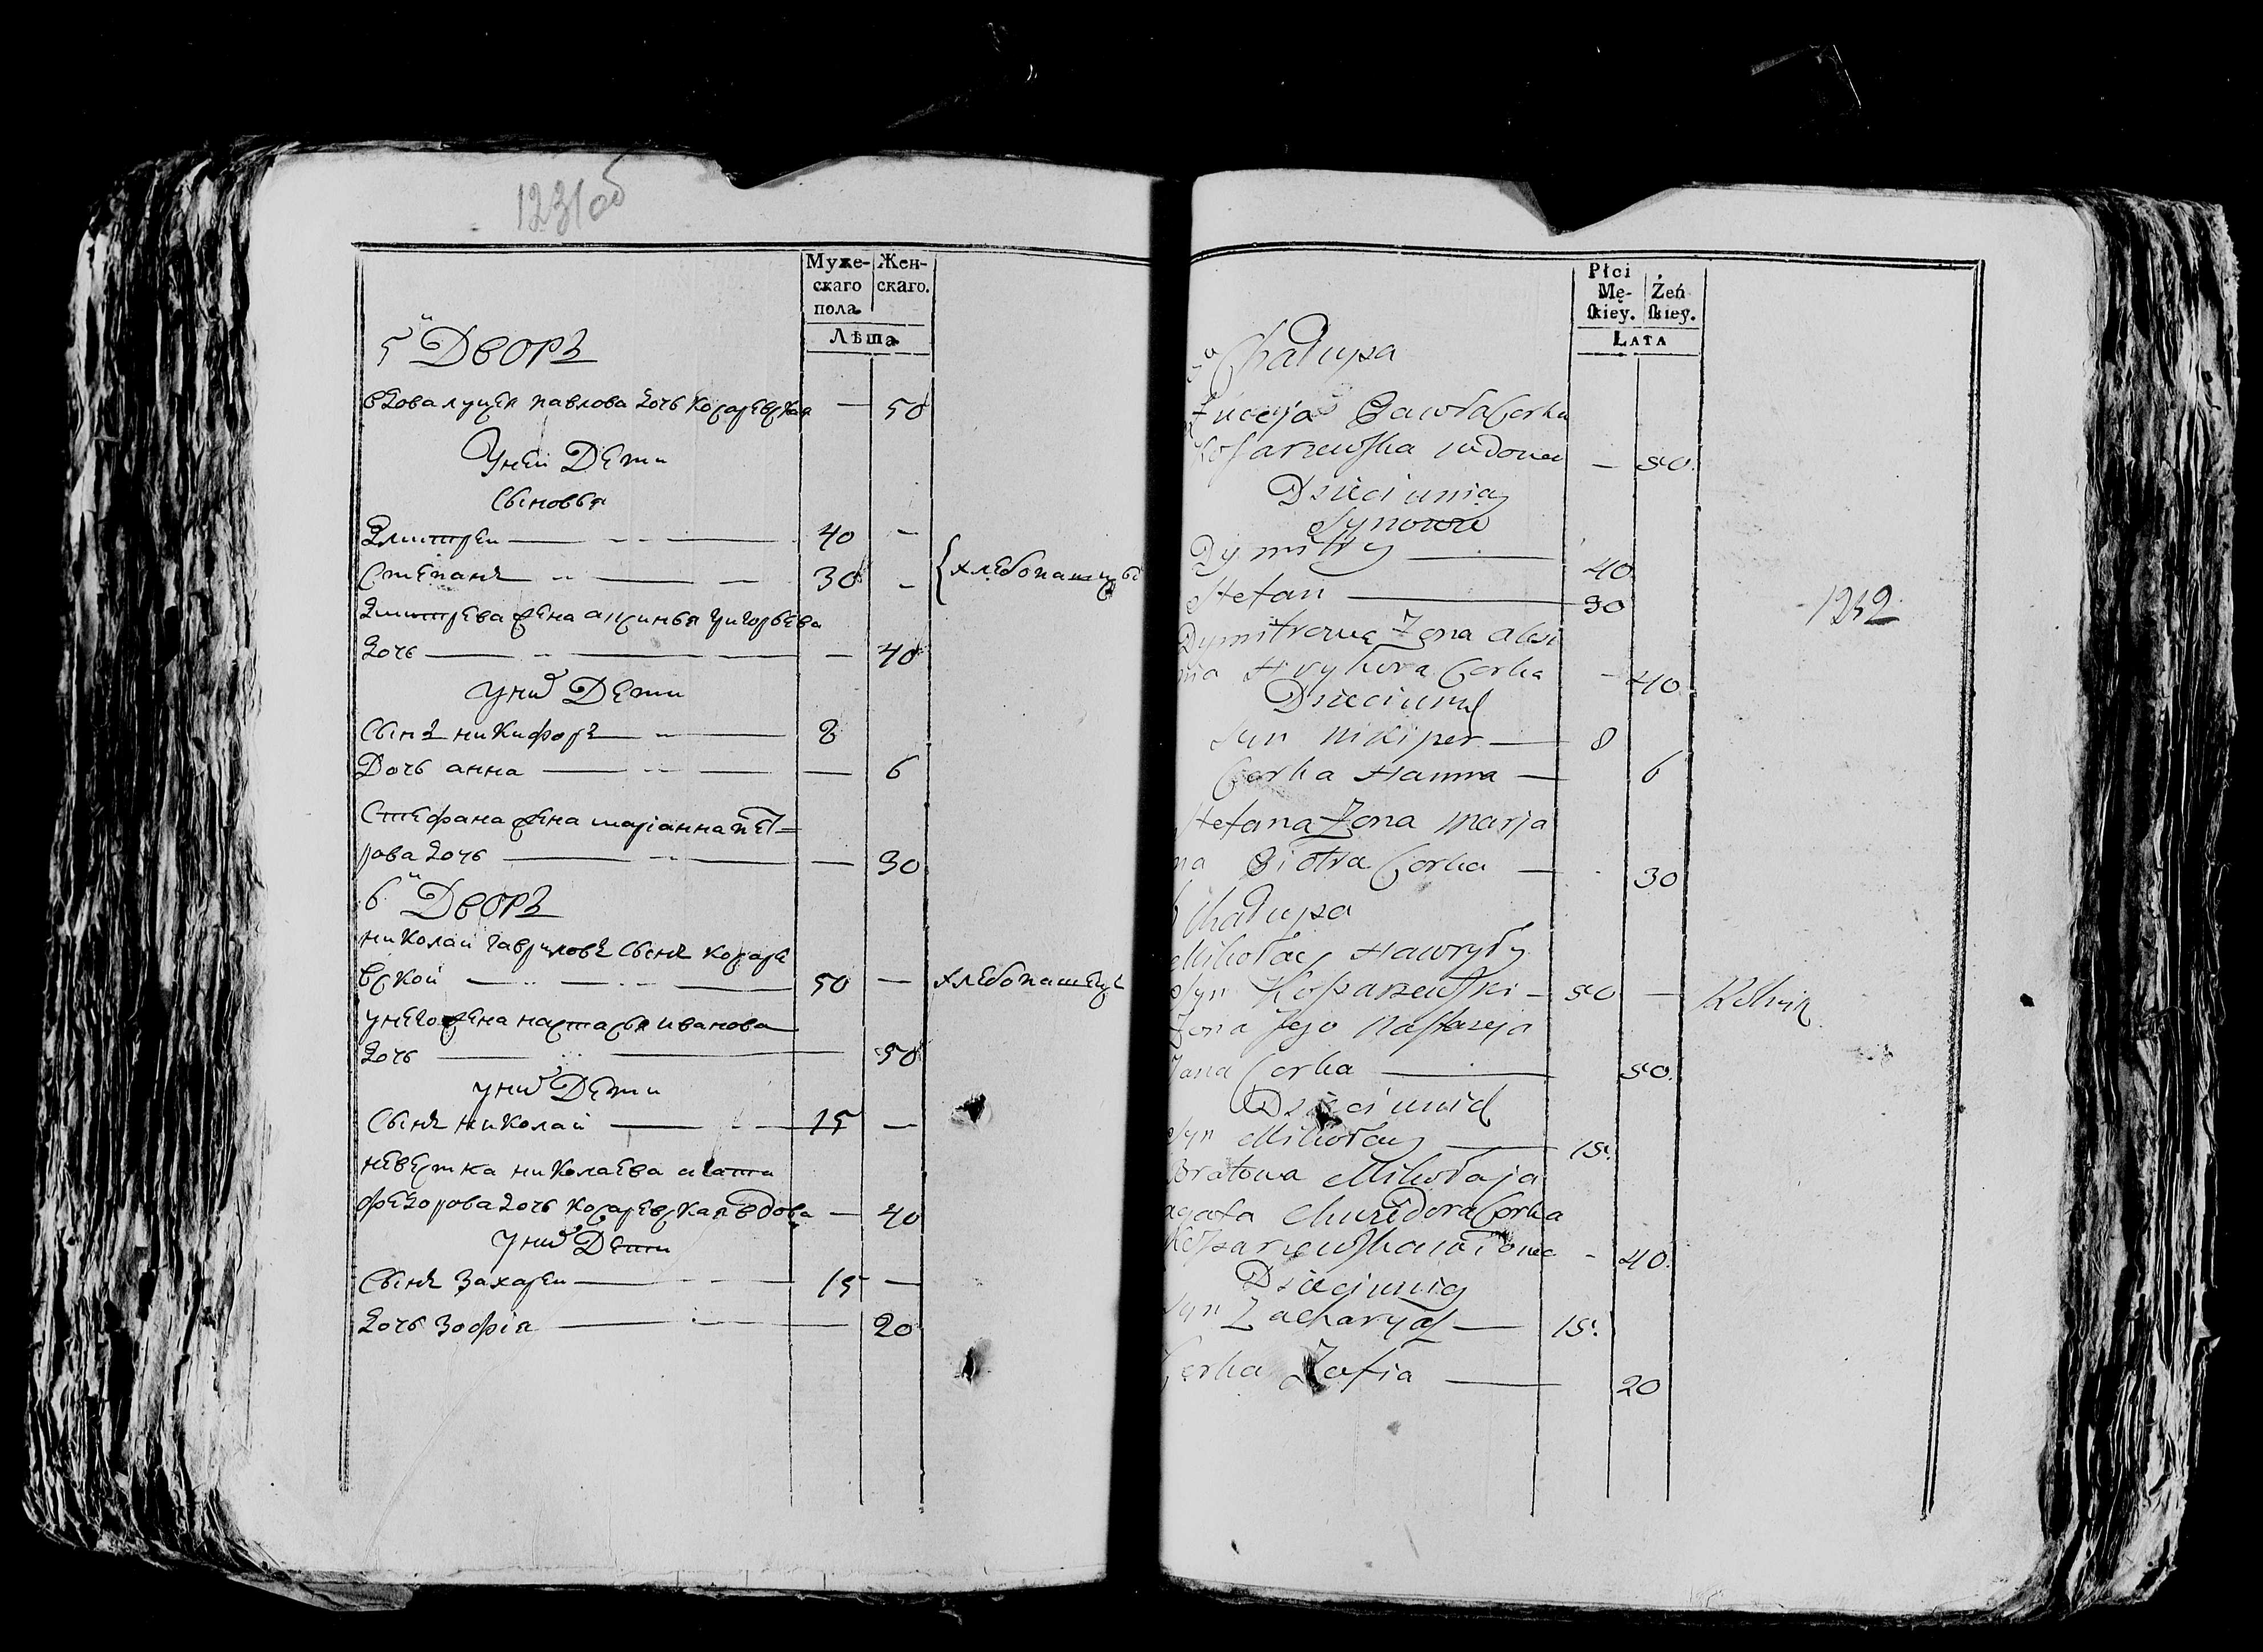 1231об
Муже-
скаго
пола.
Жен-
скаго.
Лѣта
5й Дворъ
вдова луцея павлова дочь косаревская — 50
У ней Дети
Сыновья
Дмитреи — 40 —
Степанъ — 30 — {хлебопашцы
Дмитрева жена аксинья григорьева
дочь — 40
у них Дети
Сынъ никифоръ — 8
Дочь анна — 6
Стефана жена марианна пет=
рова дочь — 30
6й Дворъ
николаи гаврилов сынъ косаре
вской — 50 — хлебопашецъ
у него жена настасья иванова
дочь — 50
у них Дети
Сынъ николаи — 15 —
невестка николаева агата
федорова дочь косаревская вдова — 40
у них Дети
Сынъ Захареи — 15 —
дочь зофия — 20
Płci
Mę-
ſkiey.
Żeń
ſkiey.
Lata
5a Chałupa
Łuceja Pawła Corka
Kosarzewska wdowa — 50.
Dzieci u nią
Synowie
Dymitry — 40
Stefan — 30
1232
Dymitrowa Żona alexi
nia Hryhora Corka — 40.
Dzieci u nich
Syn Nikiper — 8
Corka Hanna — 6
Stefana Żona Marja
na Piotra Corka — 30
6 Chałupa
Mikołaj Hawryły
Syn Kosarzewski — 50 — Rolnik
Żona Jego Nastazija
Jana Corka — 50.
Dzieci u nich
Syn Mikołay — 15.
Bratowa Mikołaja
agata Chwedora Corka
Kosarzewska wdowa — 40.
Dzieci u nią
Syn Zacharyasz — 15.
Corka Zofia — 20